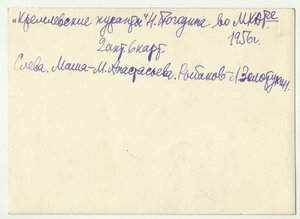 "Кремлевские куранты" Н. Погодина во МХАТе
1956г.
2акт 6карт.
Слева. Маша-М. Анастасьева. Рыбаков-Л. Золотухин.